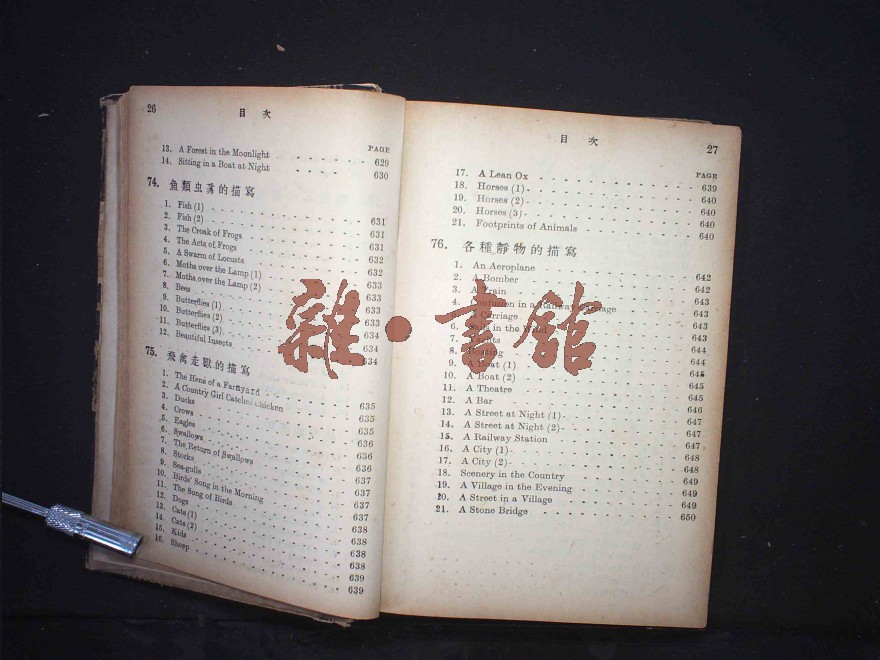 26
目 次
PAGE
13. A Forest in the Moonlight 629
14. Sitting in a Boat at Night 630
74. 魚類虫豸的描寫
1. Fish (1) 631
2. Fish (2) 631
3. The Croak of Frogs 631
4. The Acts of Frogs 632
5. A Swarm of Locusts 632
6. Moths over the Lamp (1) 633
7. Moths over the Lamp (2) 633
8. Bees 633
9. Butterflies (1) 633
10. Butterflies (2) 634
11. Butterflies (3) 634
12. Beautiful Insects
75. 飛禽走獸的描寫
1. The Hens of a Farmyard 635
2. A Country Girl Catches Chicken 635
3. Ducks 635
4. Crows 636
5. Eagles 636
6. Swallows 636
7. The Return of Swallows 637
8. Storks 637
9. Sea-gulls 637
10. Birds' Song in the Morning 637
11. The Song of Birds 638
12. Dogs 638
13. Cats (1) 638
14. Cats (2) 638
15. Kids 639
16. Sheep 639
目 次
27
PAGE
17. A Lean Ox 639
18. Horses (1) 640
19. Horses (2) 640
20. Horses (3) 640
21. Footprints of Animals 640
76. 各種靜物的描寫
1. An Aeroplane 642
2. A Bomber 642
3. A Train 643
4. Confusion in a Railway Carriage 643
5. A Carriage 643
6. Sails in the Wind 643
7. Yachts 644
8. Boating 644
9. A Boat (1) 645
10. A Boat (2) 645
11. A Theatre 645
12. A Bar 646
13. A Street at Night (1) 647
14. A Street at Night (2) 647
15. A Railway Station 647
16. A City (1) 648
17. A City (2) 648
18. Scenery in the Country 649
19. A Village in the Evening 649
20. A Street in a Village 649
21. A Stone Bridge 650
雜·書館